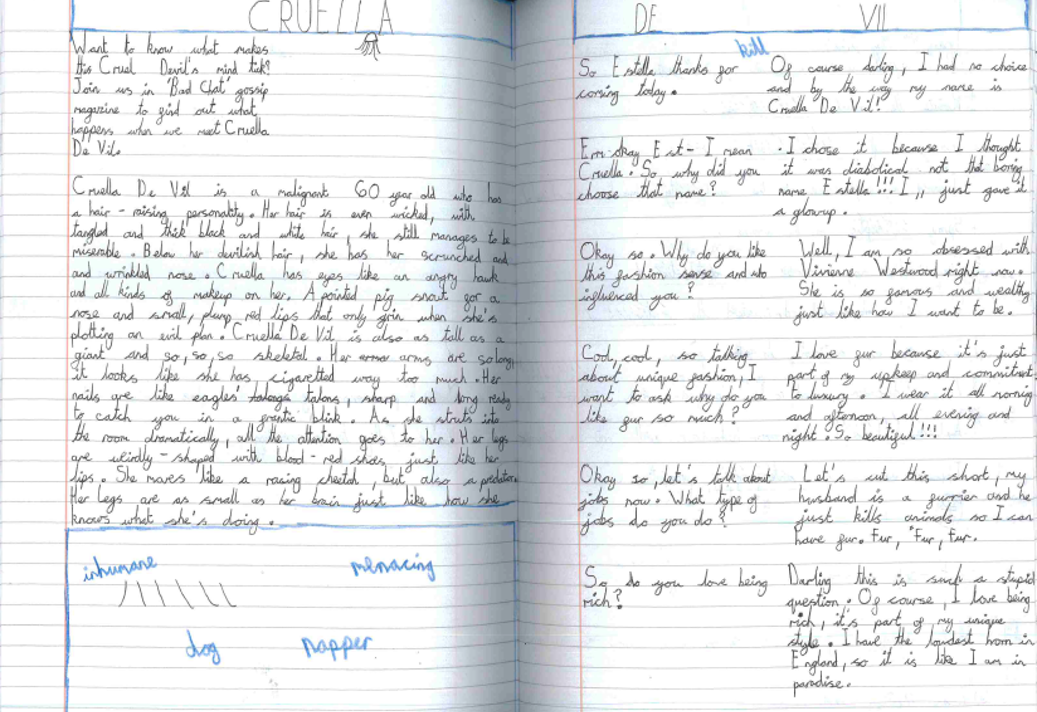 CRUELLA
Want to know what makes
this Cruel Devil's mind tick?
Join us in 'Bad Chat' gossip
magazine to find out what
happens when we meet Cruella
De Vil.
Cruella De Vil is a malignant 60 year old who has
a hair-raising personality. Her hair is even wicked, with
tangled and thick black and white hair, she still manages to be
miserable. Below her devilish hair, she has her scrunched and
and wrinkled nose. Cruella has eyes like an angry hawk
and all kinds of makeup on her. A pointed pig snout for a
nose and small, plump red lips that only grin when she's
plotting an evil plan. Cruella De Vil is also as tall as a
giant and so, so, so skeletal. Her arms are so long,
it looks like she has cigaretted way too much. Her
nails are like eagles talons, sharp and long ready
to catch you in a frantic blink. As she struts into
the room dramatically, all the attention goes to her. Her legs
are weirdly-shaped with blood-red shoes, just like her
lips. She moves like a racing cheetah, but also a predator.
Her legs are as small as her brain just like how she
knows what she's doing.
inhumane
menacing
dog napper
DE VIl
kill
So Estella thanks for
coming today.
Of course darling, I had no choice
and by the way my name is
Cruella De Vil!
Erm okay Est- I mean
Cruella. So, why did you
choose that name?
I chose it because I thought
it was diabolical not that boring
name Estella!!! I, just gave it
a glowup.
Okay so. Why do you like
this fashion sense and who
influenced you?
Well, I am so obsessed with
Vivienne Westwood right now.
She is so famous and wealthy
just like how I want to be.
Cool, cool, so talking
about unique fashion, I
want to ask why do you
like fur so much?
I love fur because it's just
part of my upkeep and commitment
to luxury. I wear it all morning
and afternoon, all evening and
night. So beautiful!!!
Okay so, let's talk about
jobs now. What type of
jobs do you do?
Let's cut this short, my
husband is a furrier and he
just kills animals so I can
have fur. Fur, Fur, Fur.
So do you love being
rich?
Darling this is such a stupid
question. Of course, I love being
rich, it's part of my unique
style. I have the loudest horn in
England, so it is like I am in
paradise.